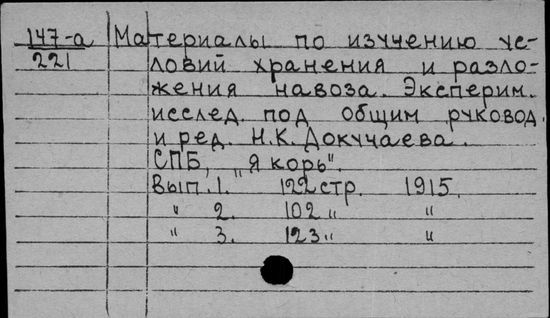 147-а Материалы по изучению ус-
221 ловий хранения и разло-
жения навоза. Эксперим.
исслед. под общим руковод.
и ред. Н.К. Докучаева.
СПБ, „Якорь".
Вып. 1. 122 стр. 1915.
" 2. 102 " "
" 3. 123 " "